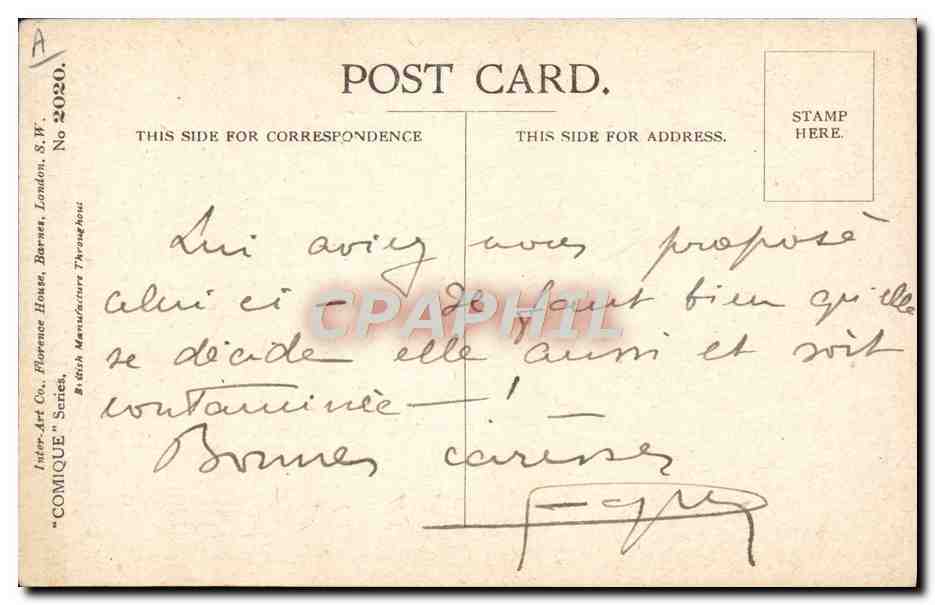 A
POST CARD.
THIS SIDE FOR CORRESPONDENCE
THIS SIDE FOR ADDRESS.
STAMP
HERE.
Inter-Art Co., Florence House, Barnes, London. S.W.
"COMIQUE" Series.
No 2020.
British Manufacture Throughout
Lui aviez vous proposé
celui ci - Il faut bien qu'elle
se décide elle aussi et soit
contaminée - !
Bonnes caresses
CPAPHIL